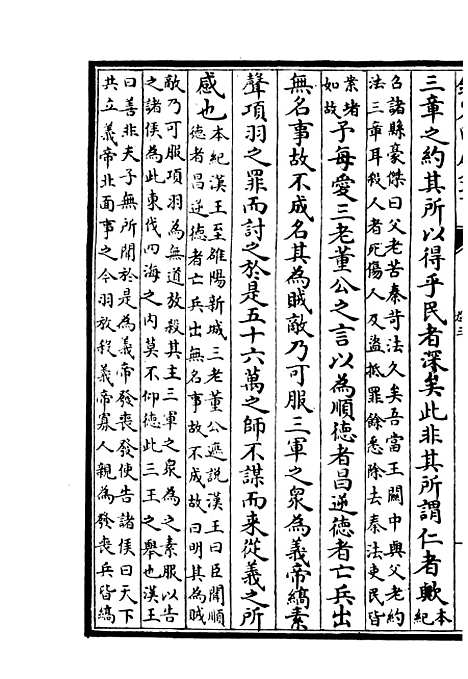 三章之約其所以得乎民者深矣此非其所謂仁者歟本紀
召諸縣豪傑曰父老苦秦苛法久矣吾當王關中與父老約
法三章耳殺人者死傷人及盜抵罪餘悉除去秦法吏民皆
案堵如故予每愛三老董公之言以為順德者昌逆德者亡兵出
無名事故不成名其為賊敵乃可服三軍之衆為義帝縞素
聲項羽之罪而討之於是五十六萬之師不謀而來從義之所
感也本紀漢王至雒陽新城三老董公遮說漢王曰臣聞順
德者昌逆德者亡兵出無名事故不成故曰明其為賊
敵乃可服項羽為無道放殺其主三軍之衆為之素服以告
之諸侯為此東伐四海之内莫不仰德此三王之舉也漢王
曰善非夫子無所聞於是為義帝發喪發使告諸侯曰天下
共立義帝北面事之今羽放殺義帝寡人親為發喪兵皆縞